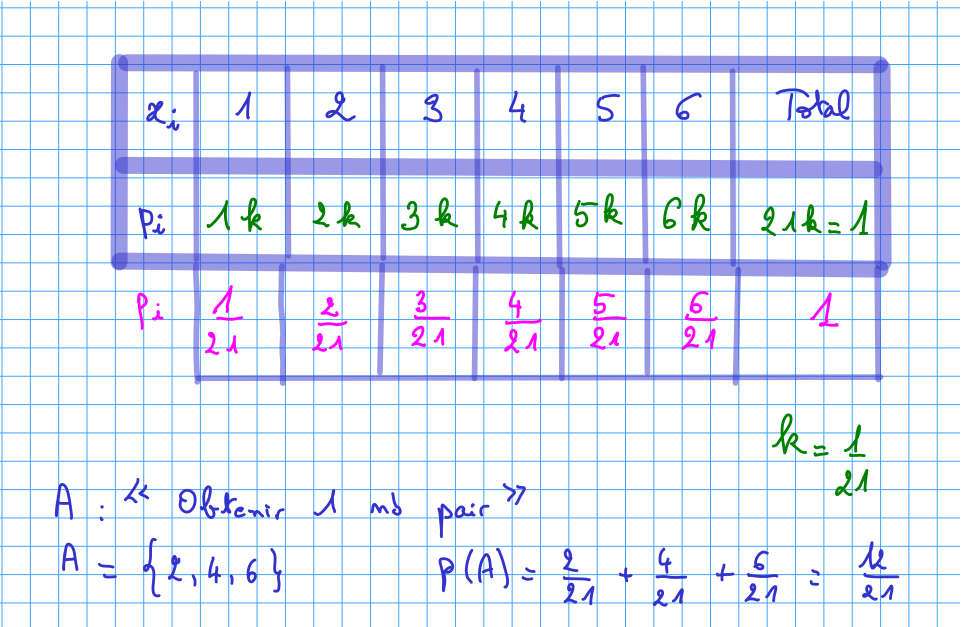 xi 1 2 3 4 5 6 Total
Pi 1k 2k 3k 4k 5k 6k 21k=1
Pi 1/21 2/21 3/21 4/21 5/21 6/21 1
k = 1/21
A : « Obtenir 1 nb pair »
A = {2, 4, 6} P(A) = 2/21 + 4/21 + 6/21 = 12/21